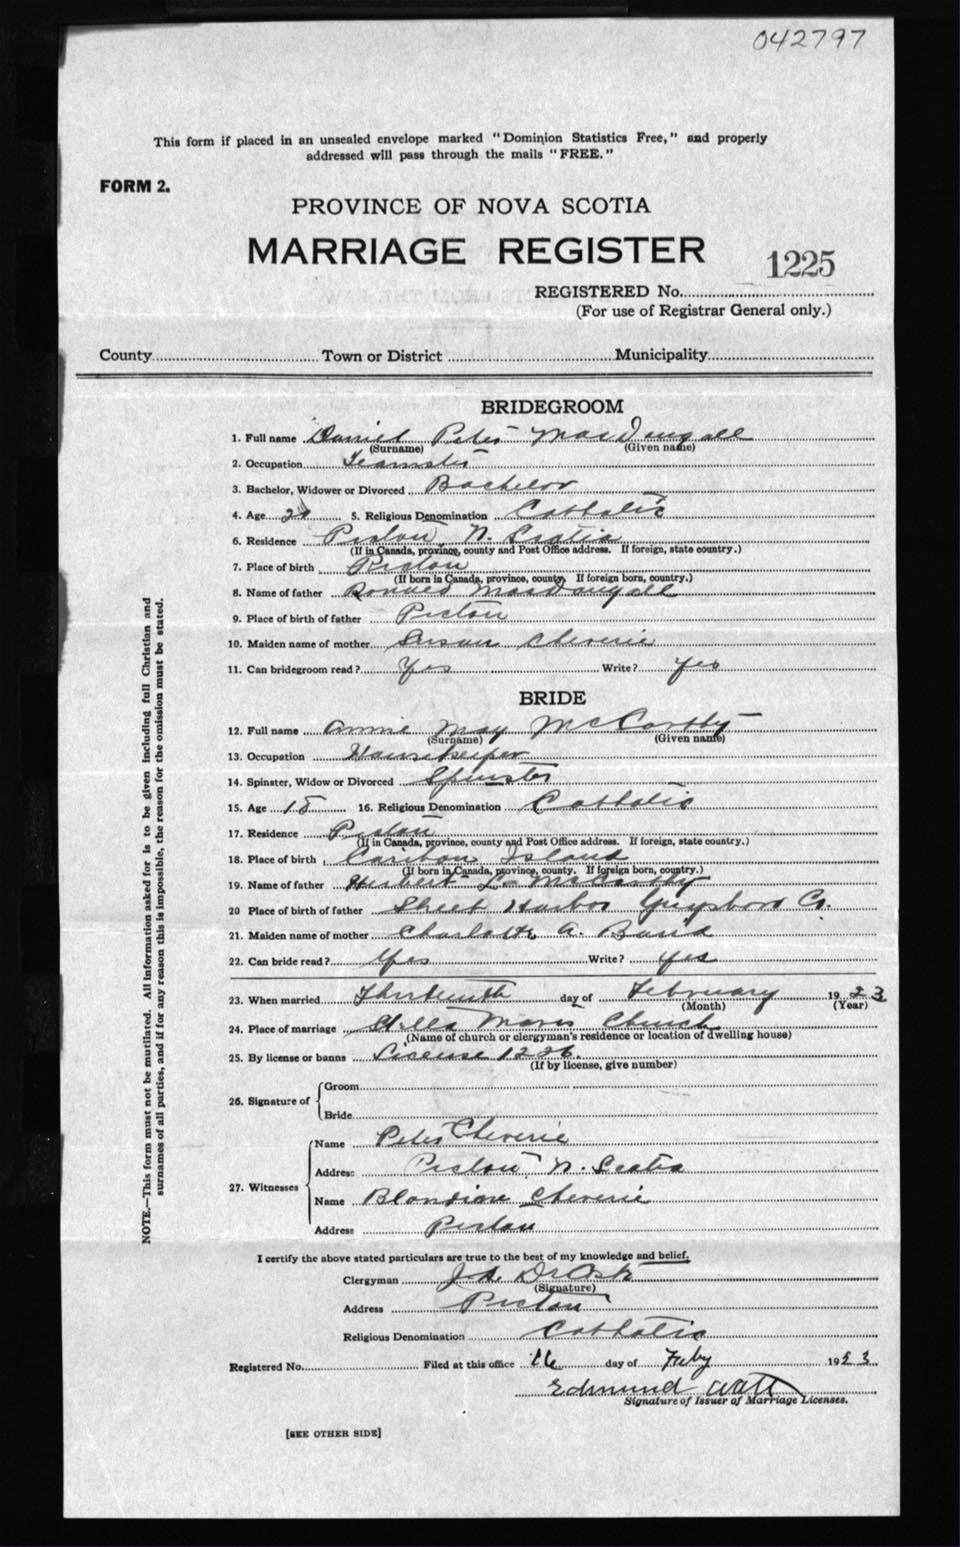 042797
This form if placed in an unsealed envelope marked "Dominion Statistics Free," and properly
addressed will pass through the mails "FREE."
FORM 2.
PROVINCE OF NOVA SCOTIA
MARRIAGE REGISTER
1225
REGISTERED No.
(For use of Registrar General only.)
County Town or District Municipality
BRIDEGROOM
1. Full name Daniel Peter MacDougall
(Surname) (Given name)
2. Occupation Teamster
3. Bachelor, Widower or Divorced Bachelor
4. Age 5. Religious Denomination Catholic
6. Residence Pictou N. Scotia
(If in Canada, province, county and Post Office address. If foreign, state country.)
7. Place of birth Pictou
(If born in Canada, province, county. If foreign born, country.)
8. Name of father Ronald MacDougall
9. Place of birth of father Pictou
10. Maiden name of mother Susan Cheverie
11. Can bridegroom read? Yes Write? Yes
BRIDE
12. Full name Annie May McCarthy
(Surname) (Given name)
13. Occupation Housekeeper
14. Spinster, Widow or Divorced Spinster
15. Age 18 16. Religious Denomination Catholic
17. Residence Pictou
(If in Canada, province, county and Post Office address. If foreign, state country.)
18. Place of birth Caribou Island
(If born in Canada, province, county. If foreign born, country.)
19. Name of father Herbert L McCarthy
20 Place of birth of father Sheet Harbor Guysboro Co.
21. Maiden name of mother Charlotte A.
22. Can bride read? Yes Write? Yes
23. When married Thirteenth day of February 1923
(Month) (Year)
24. Place of marriage Stella Maris Church
(Name of church or clergyman's residence or location of dwelling house)
25. By license or banns License 1226.
(If by license, give number)
26. Signature of
Groom
Bride
27. Witnesses
Name Peter Cheverie
Address Pictou N. Scotia
Name Cheverie
Address Pictou
I certify the above stated particulars are true to the best of my knowledge and belief.
Clergyman
(Signature)
Address Pictou
Religious Denomination Catholic
Registered No. Filed at this office 16 day of Feby 1923
Edmund Watt
Signature of Issuer of Marriage Licenses.
[SEE OTHER SIDE]
NOTE.—This form must not be mutilated. All information asked for is to be given including full Christian and
surnames of all parties, and if for any reason this is impossible, the reason for the omission must be stated.